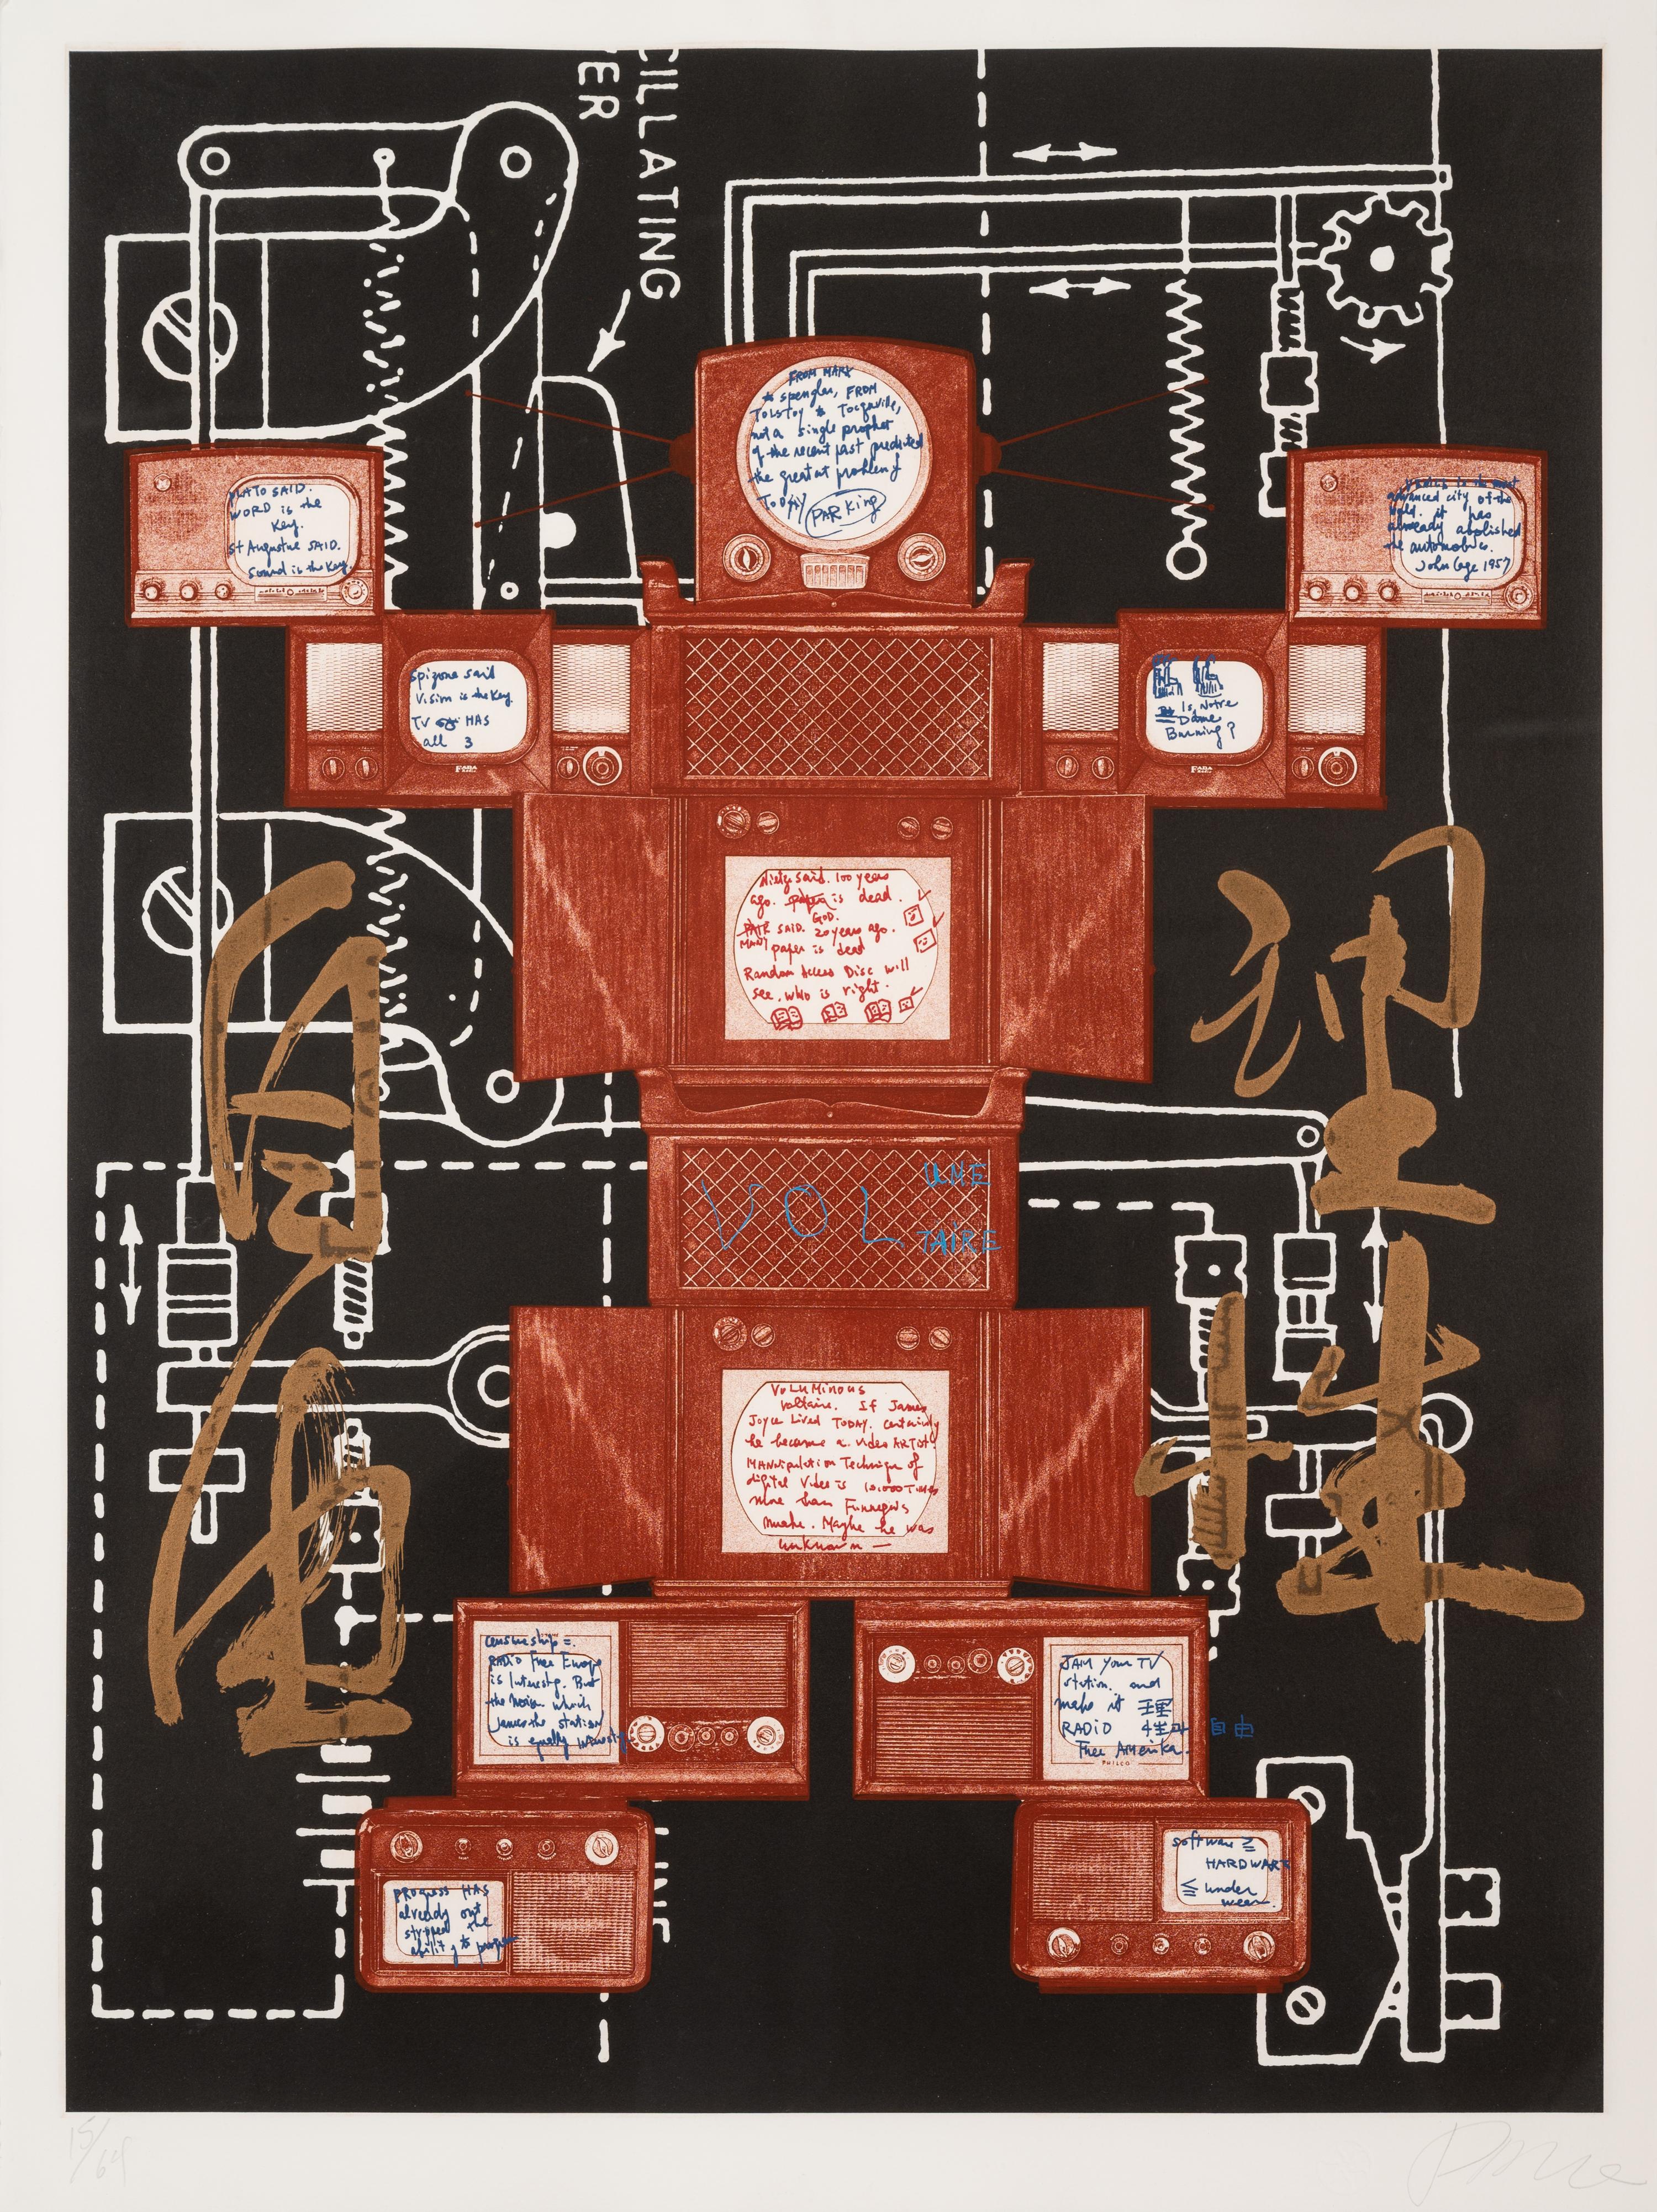 CILLATING
ER
FROM MARX
& spengler, FROM
TOLSTOY & Tocqueville,
not a single prophet
of the recent past predicted
the greatest problem of
TODAY
PARKing
PLATO SAID.
WORD is the
Key.
St Augustine SAID.
Sound is the Key.
Venice is the most
advanced city of the
world. it has
already abolished
the automobiles.
John Cage 1957
Spinoza said
Vision is the Key.
TV HAS
all 3
FADA
Is Notre
Dame
Burning?
FADA
said. 100 years
ago. is dead.
GOD.
SAID. 20 years ago.
MANY paper is dead
Random Access Disc will
see. who is right.
理性
自由
VOL
UME
TAIRE
VOLUMINOUS
Voltaire. If James
Joyce Lived TODAY. certainly
he became a. video ARTist.
MANipulation Technique of
digital Video is 10.000 TIMEs
more than Finnegans
. Maybe he was
unknown —
censureship =.
RADIO Free Europe
is Interestg. But
the Noise which
James the station
is equally
JAM your TV
station. and
make it 理
RADIO 性과 自由
Free AMerika.
PHILCO
PROgress HAS
already out
stripped the
ability to
software ≥
HARDWARE
≤ under
wear.
15/69